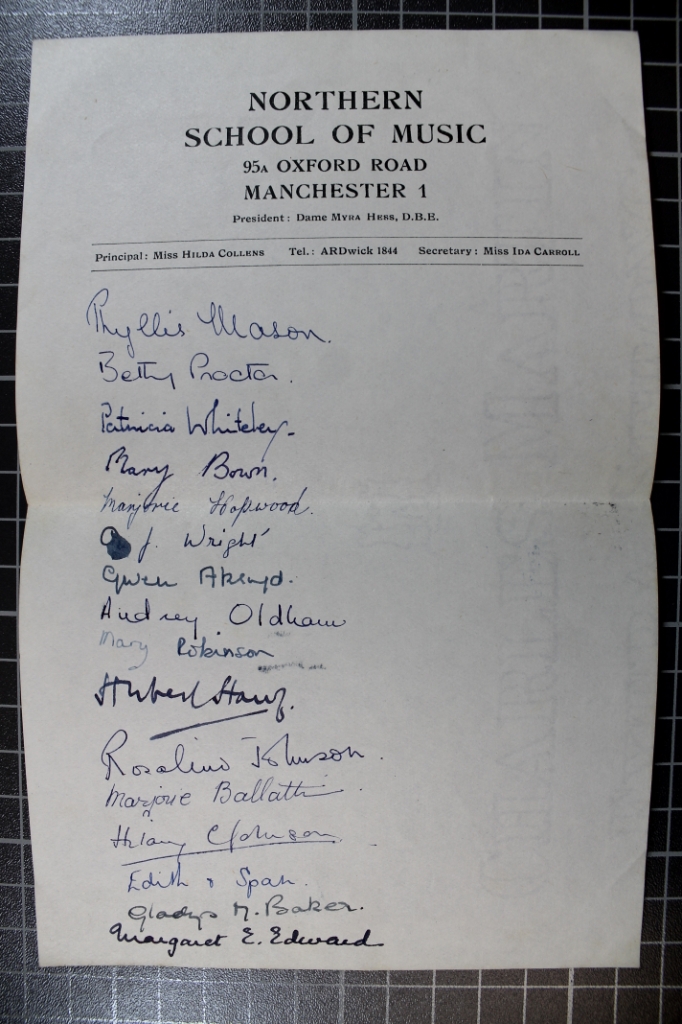 NORTHERN
SCHOOL OF MUSIC
95A OXFORD ROAD
MANCHESTER 1
President: Dame MYRA HESS, D.B.E.
Principal: Miss HILDA COLLENS Tel.: ARDwick 1844 Secretary: Miss IDA CARROLL
Phyllis Mason.
Betty Proctor.
Patricia Whiteley.
Mary Bown.
Marjorie Hopwood.
J. Wright
Gwen Akroyd.
Audrey Oldham
Mary Robinson
Rosalind Johnson.
Marjorie
Hilary Johnson
Edith
Gladys M. Baker.
Margaret E. Edward